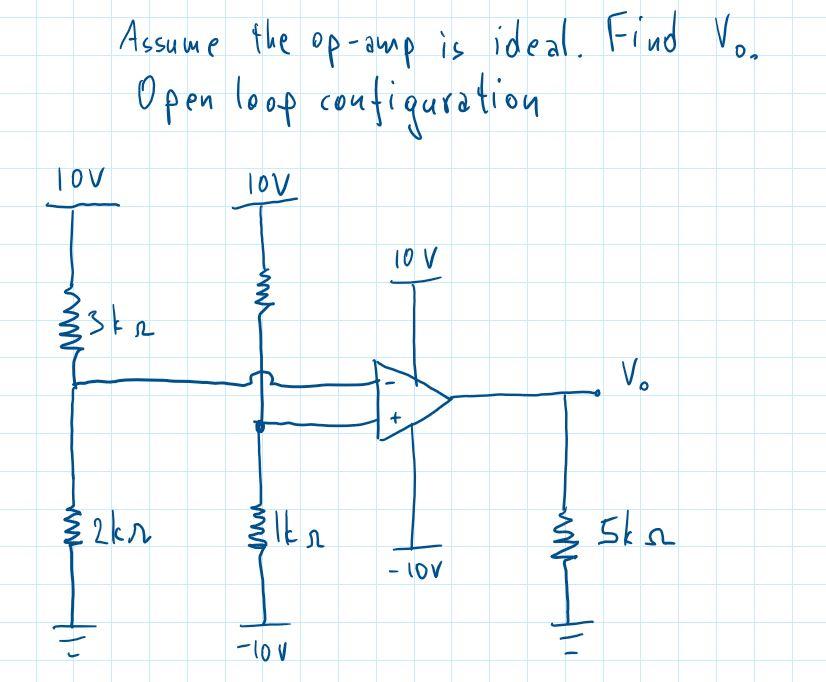 Assume the op-amp is ideal. Find Vo.
Open loop configuration
10V
10V
10 V
3kΩ
-
Vo
+
2kΩ
1kΩ
5kΩ
-10V
-10V